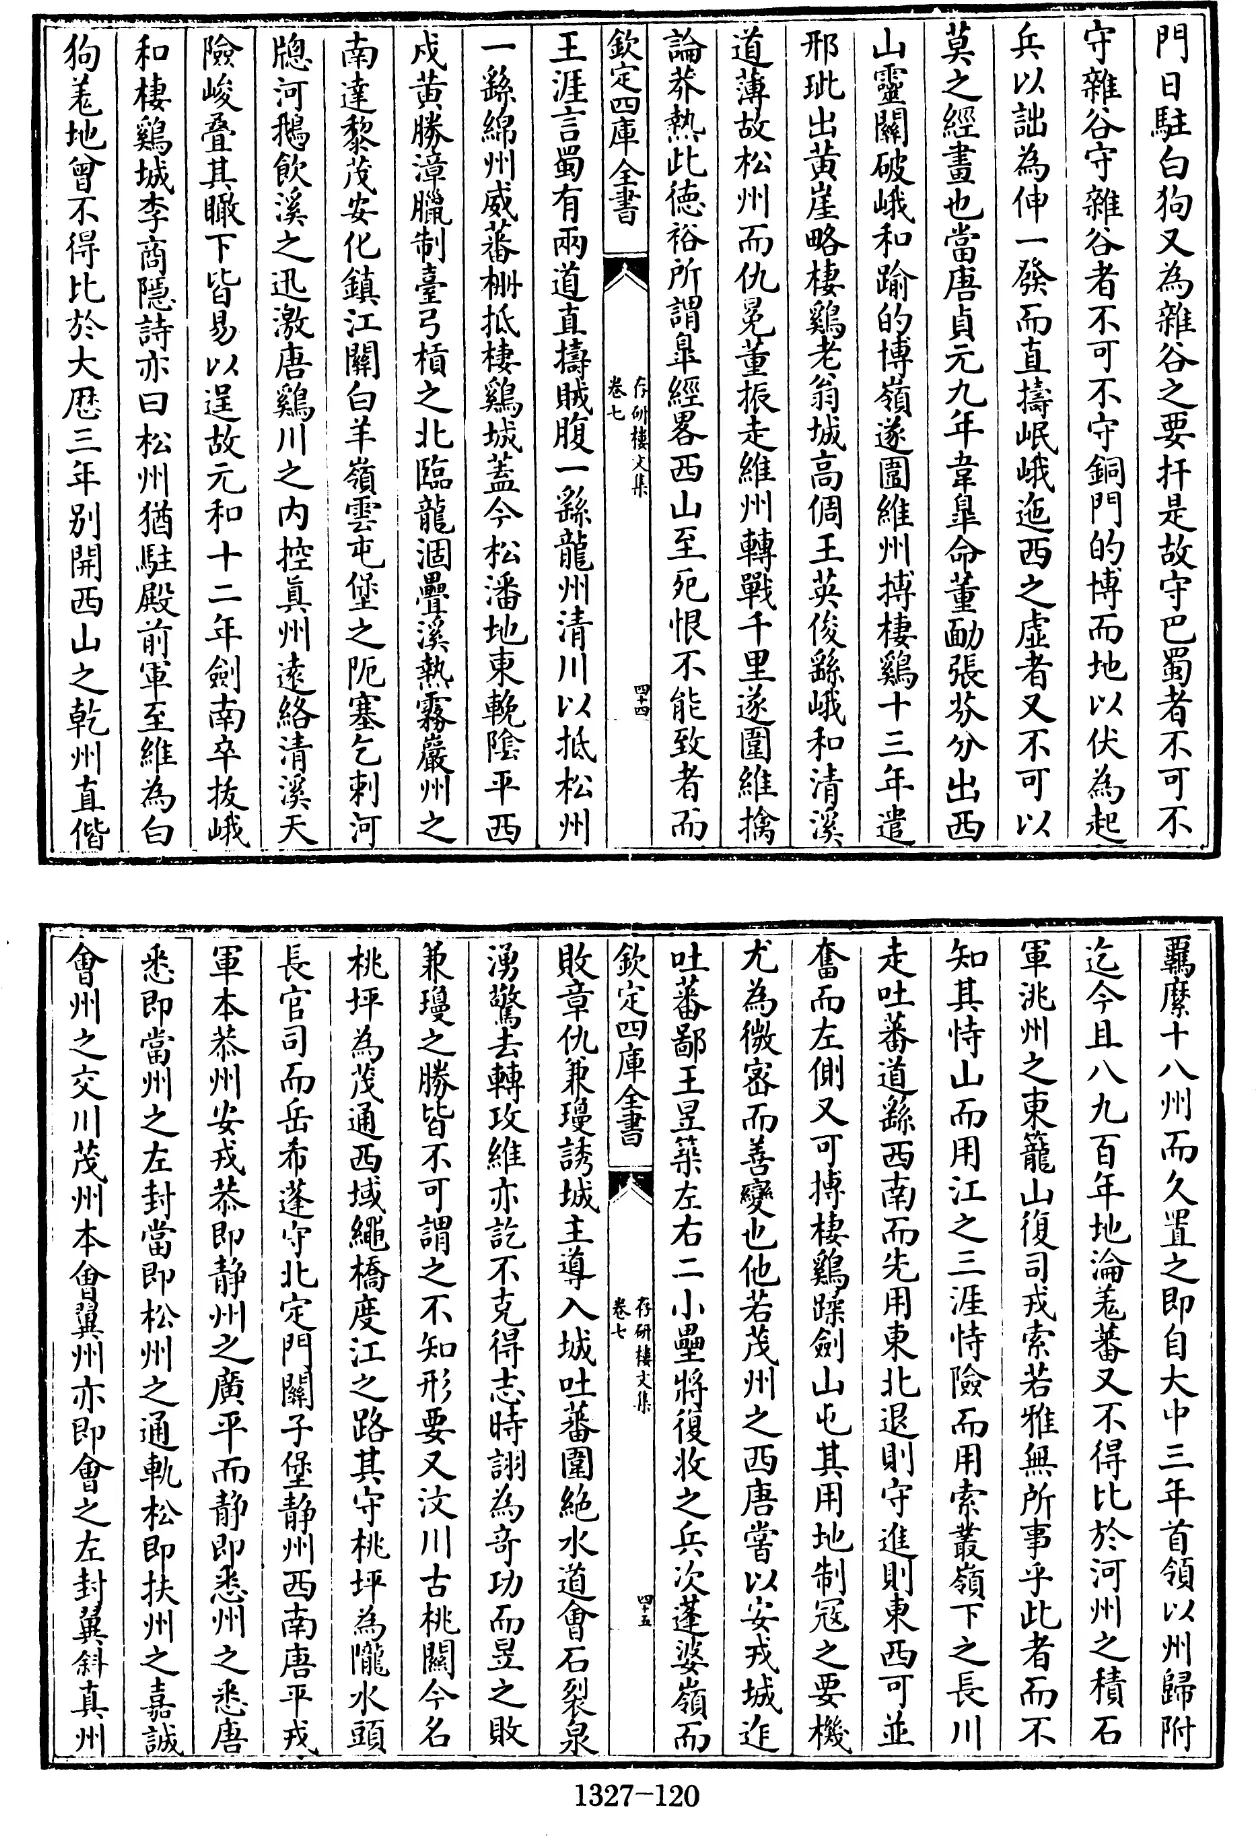 門日駐白狗又為雜谷之要扞是故守巴蜀者不可不
守雜谷守雜谷者不可不守銅門的博而地以伏為起
兵以詘為伸一發而直擣岷峨迤西之虛者又不可以
莫之經畫也當唐貞元九年韋臯命董勔張芬分出西
山靈關破峨和踰的博嶺遂圍維州搏棲鷄十三年遣
邢玼出黃崖略棲鷄老翁城高倜王英俊繇峨和清溪
道薄故松州而仇冕董振走維州轉戰千里遂圍維擒
論莽熱此德裕所謂臯經畧西山至死恨不能致者而
欽定四庫全書
存研樓文集
卷七
四十四
王涯言蜀有兩道直擣賊腹一繇龍州清川以抵松州
一繇綿州威蕃栅抵棲鷄城蓋今松潘地東輓陰平西
戍黃勝漳臘制臺弓槓之北臨龍涸疊溪熱霧巖州之
南達黎茂安化鎮江關白羊嶺雲屯堡之阨塞乞刺河
牕河鵝飲溪之迅激唐鷄川之內控真州遠絡清溪天
險峻疊其瞰下皆易以逞故元和十二年劍南卒拔峨
和棲鷄城李商隱詩亦曰松州猶駐殿前軍至維為白
狗羌地曾不得比於大厯三年别開西山之乾州直偕
羈縻十八州而久置之即自大中三年首領以州歸附
迄今且八九百年地淪羌蕃又不得比於河州之積石
軍洮州之東籠山復司戎索若雅無所事乎此者而不
知其恃山而用江之三涯恃險而用索叢嶺下之長川
走吐蕃道繇西南而先用東北退則守進則東西可並
奮而左側又可搏棲鷄蹂劍山屯其用地制冦之要機
尤為微密而善變也他若茂州之西唐嘗以安戎城迮
吐蕃鄙王昱築左右二小壘將復收之兵次蓬婆嶺而
欽定四庫全書
存研樓文集
卷七
四十五
敗章仇兼瓊誘城主導入城吐蕃圍絶水道會石裂泉
湧驚去轉攻維亦訖不克得志時詡為奇功而昱之敗
兼瓊之勝皆不可謂之不知形要又汶川古桃關今名
桃坪為茂通西域繩橋度江之路其守桃坪為隴水頭
長官司而岳希蓬守北定門關子堡静州西南唐平戎
軍本恭州安戎恭即静州之廣平而静即悉州之悉唐
悉即當州之左封當即松州之通軌松即扶州之嘉誠
會州之交川茂州本會翼州亦即會之左封翼斜真州
1327-120